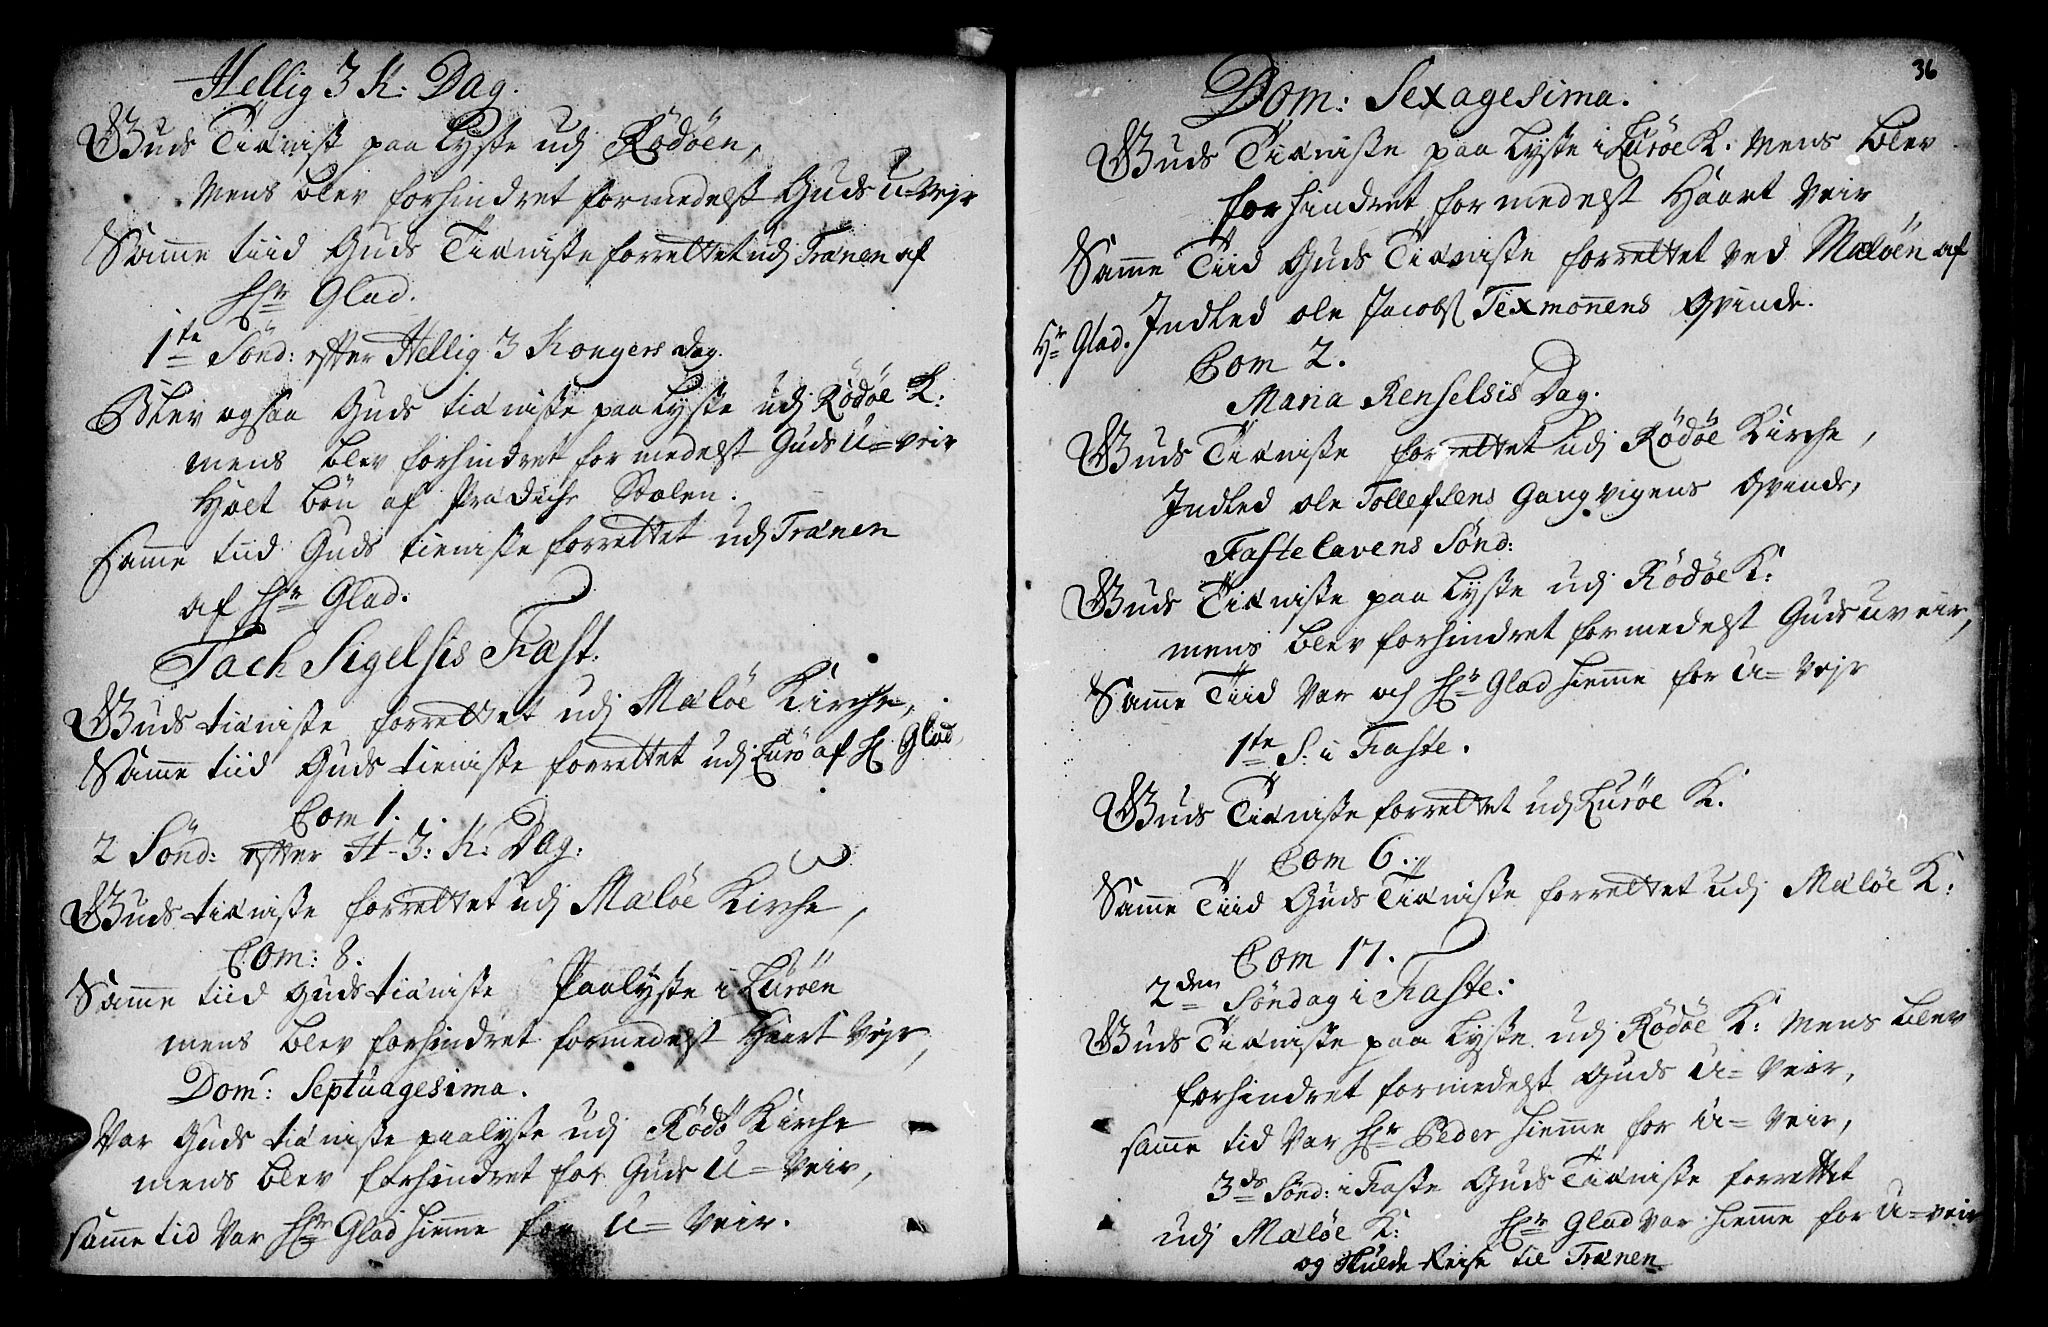 Hellig 3 K: Dag.
Guds Tiænist paa lyste udj Rödöen,
Mens blev forhindret formedelst Guds U=vejr
Samme tiid Guds Tiæniste forrettet udj Trænen af
Hr Glad.
1te Sönd: efter Hellig 3 Kongers Dag.
Blev ogsaa Guds tiæniste paa lyste udj Rödöe K:
mens blev forhindret formedelst Guds U=veir
Holt bön af Prædiche Stolen.
Samme tiid Guds tieniste forrettet udj Trænen
af Hr Glad.
Tach Sigelsis Fast:
Guds tiæniste forrettet udj Mælöe Kirche,
Samme tiid Guds tieniste forrettet udj Lurö af H Glad,
Com 1.
2 Sönd: efter H-3: K: Dag:
Guds tiæniste forrettet udj Mælöe Kirche,
Com: 8.
Samme tiid Guds tiæniste Paalyste i Luröen
mens blev forhindret formedelst Haart Vejr,
Dom: Septuagesima.
Var Guds tiæniste paalyste udj Rödö Kirche
mens blev forhindret for Guds U=Veir,
samme tid Var Hr Glad hiemme for U=Veir.
36
Dom: Sexagesima.
Guds Tiæniste paa lyste i Luröe K. Mens blev
forhindret formedelst Haart Veir
Samme Tiid Guds Tiæniste forrettet ved Mælöen af
Hr Glad. Indled ole Jacobs Texmonens Qvinde.
Com 2.
Maria Renselsis Dag.
Guds Tiæniste forrettet udj Rödöe Kirche,
Indled ole Tollefsens Gangvigens Qvinde,
Fastelavens Sönd:
Guds Tiæniste paa lyste udj Rödöe K:
mens blev forhindret formedelst Guds uveir,
Samme Tiid Var och Hr Glad hiemme for U=Vejr
1te S: i Faste.
Guds Tiæniste forrettet udj Luröe K.
Com 6.
Samme Tiid Guds Tiæniste forrettet udj Mælöe K:
Com 17.
2den Söndag i Faste:
Guds Tiæniste paa lyste udj Rödöe K: Mens blev
forhindret formedelst Guds U=Veir,
samme tid Var Hr Peder hiemme for U=Veir,
3de Sönd: i Faste Guds Tiæniste forrettet
udj Mælöe K: Hr Glad Var hiemme for U=veir
og Skulde Reise til Trænen